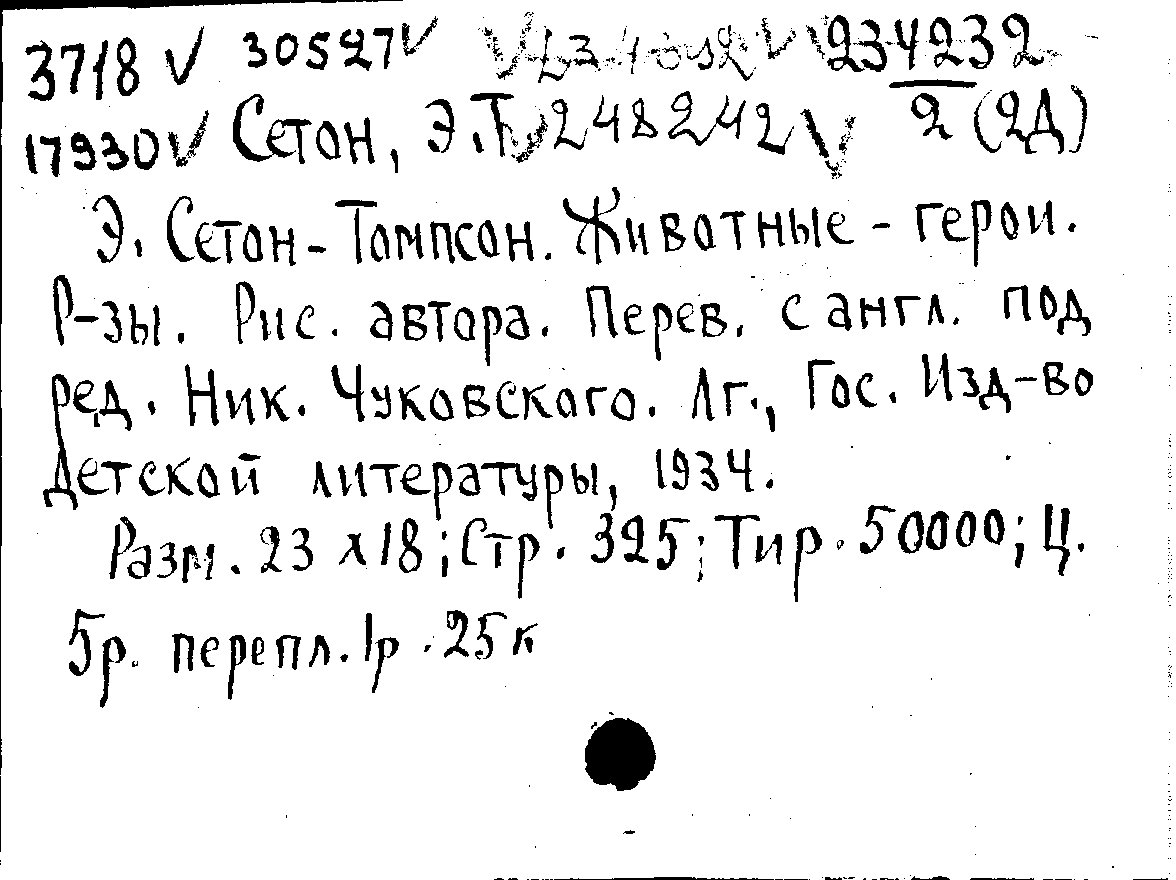 3718 V 30527 V V V 234232
17930 V Сетон, Э.Т. 248242 V 2 (2Д)
Э. Сетон-Томпсон. Животные - герои.
Р-зы. Рис. автора. Перев. с англ. под
ред. Ник. Чуковского. Лг., Гос. Изд-во
детской литературы, 1934.
Разм. 23 х 18; Стр. 325; Тир. 50000; Ц.
5р. перепл. 1р. 25к